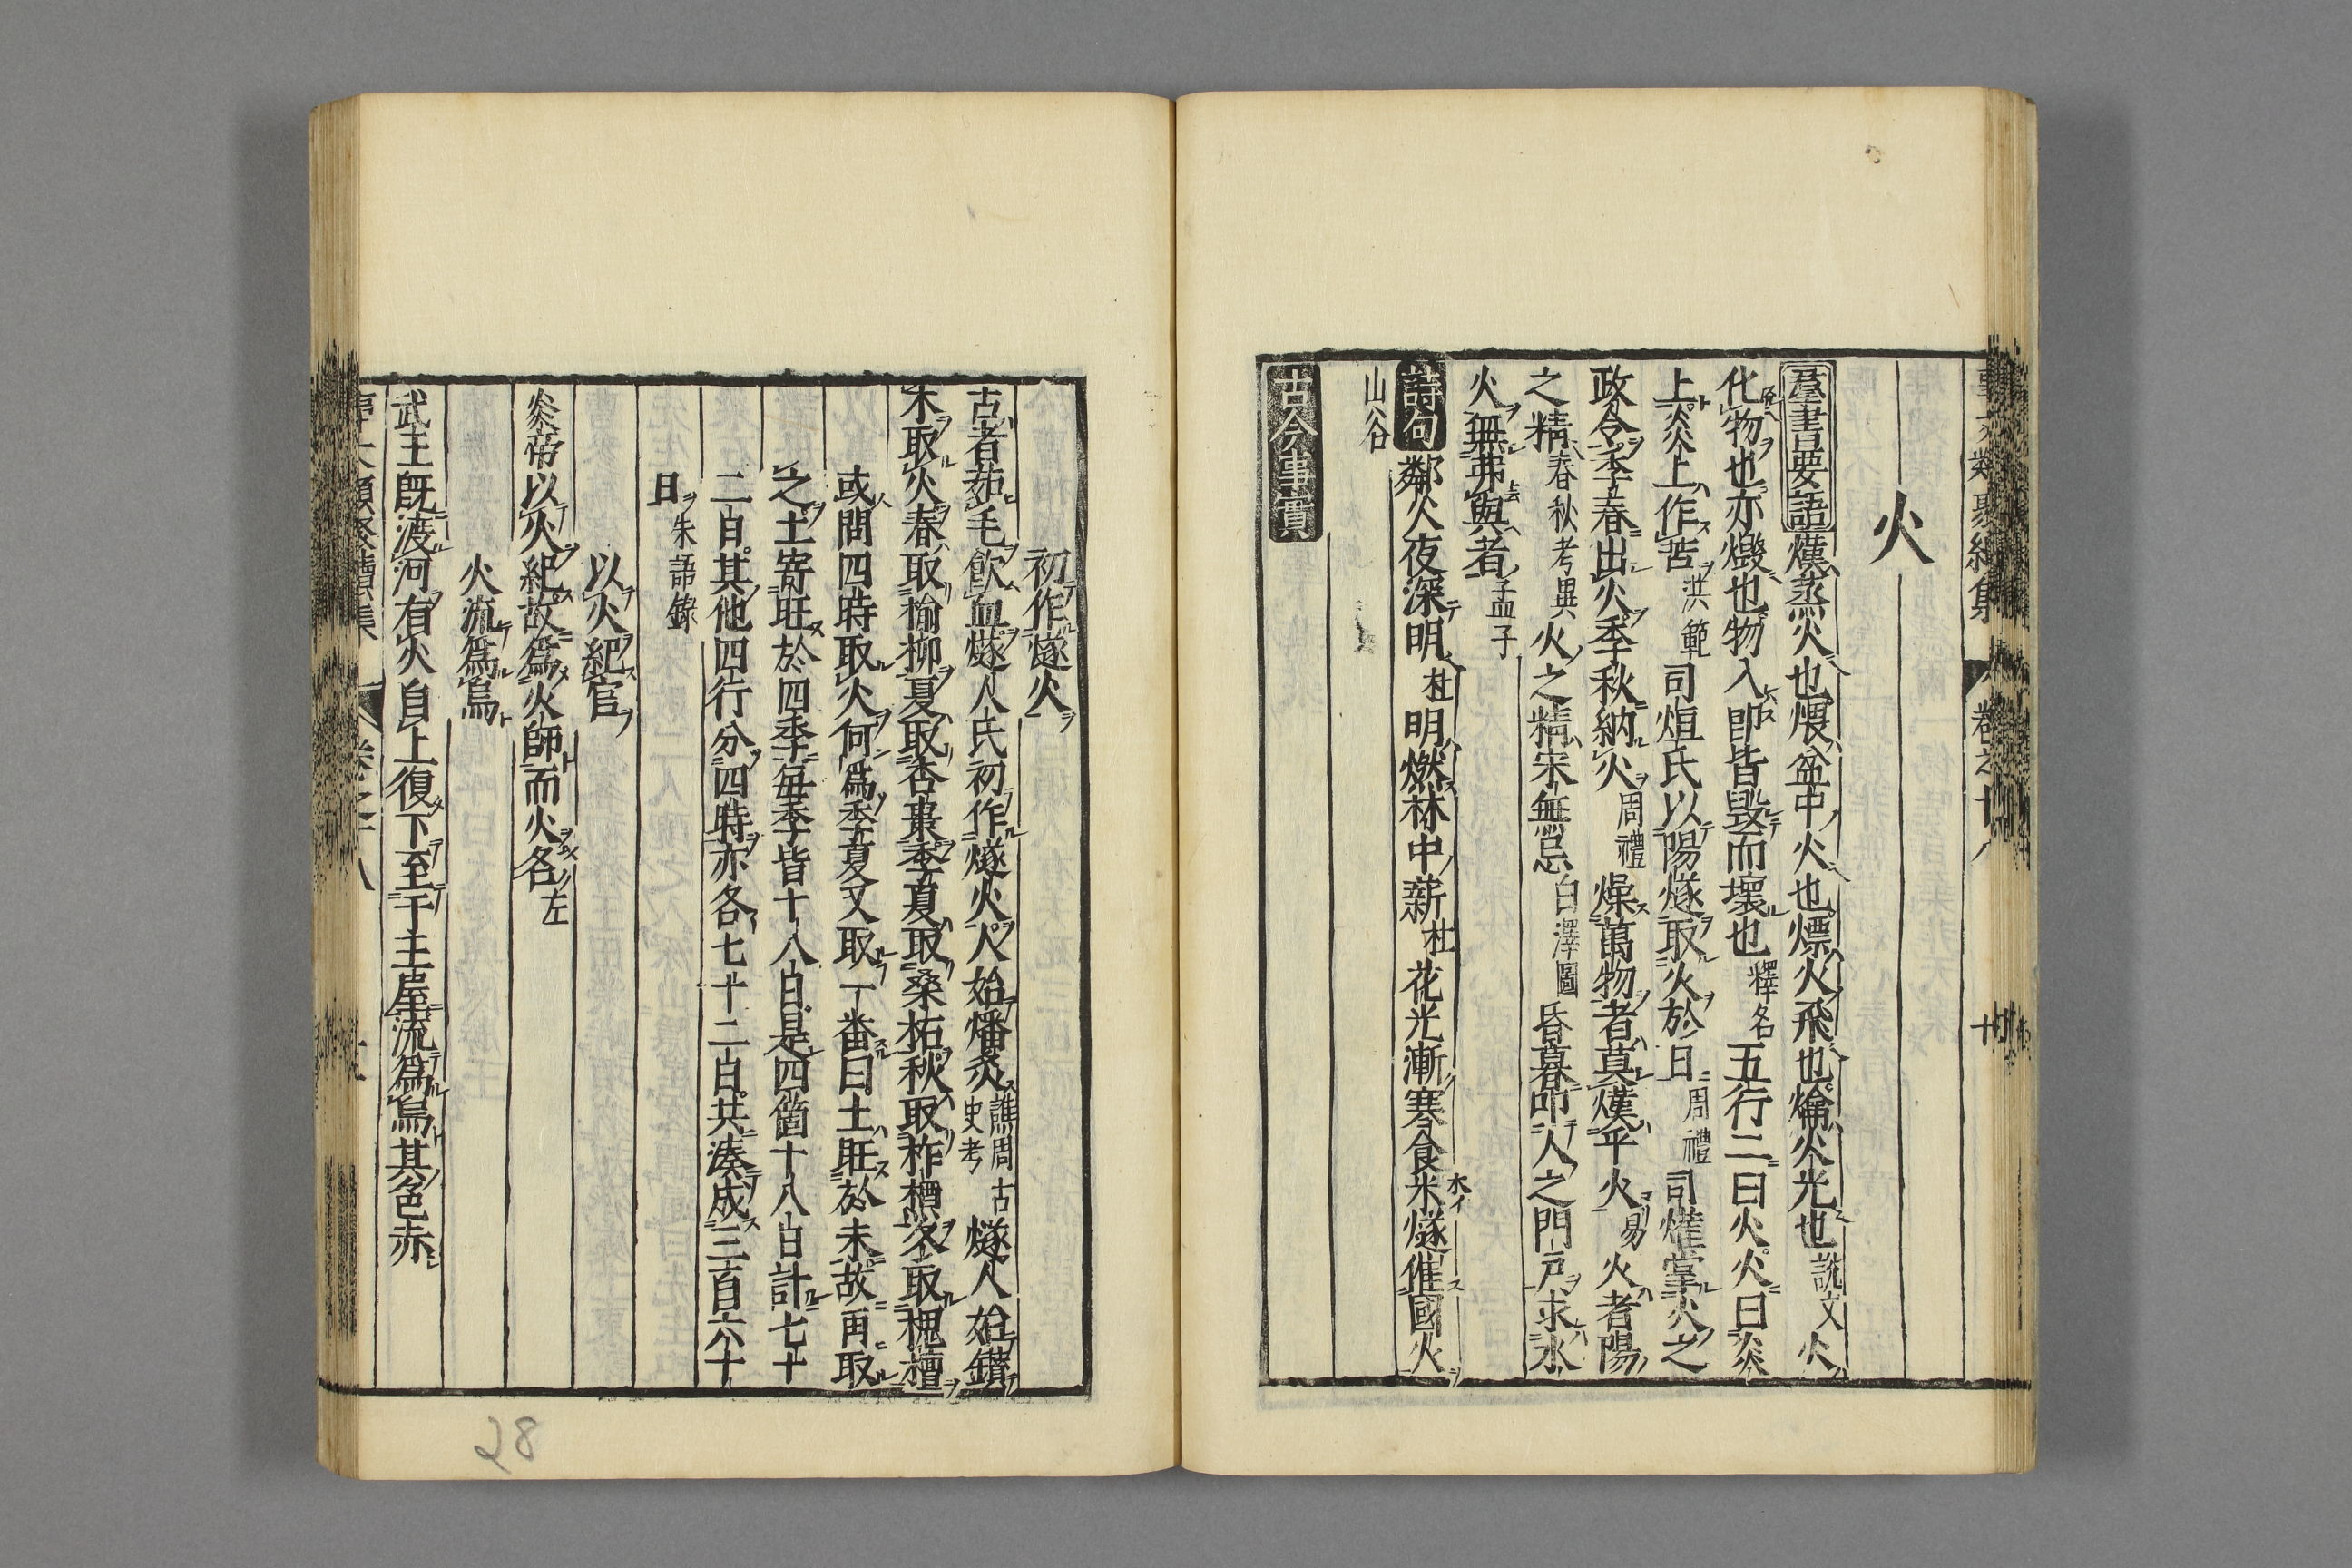 火
羣書要語 熯蒸火也煨盆中火也熛火飛也爚火光也說文火
化物也亦燬也物入即皆毀而壞也釋名五行二曰火火曰炎
上炎上作苦洪範司烜氏以陽燧取火於日周禮司爟掌火之
政令季春出火季秋納火周禮燥萬物者莫熯乎火易火者陽
之精春秋考異火之精宋無忌白澤圖昏暮叩人之門戶求水
火無弗與者孟子
詩句 鄰火夜深明杜明燃林中薪杜花光漸寒食木燧催國火
山谷
古今事實
初作燧火
古者茹毛飲血燧人氏初作燧火人始燔炙譙周古史考燧人始鑽
木取火春取榆柳夏取杏棗季夏取桑柘秋取柞楢冬取槐檀
或問四時取火何為季夏又取一番曰土旺於未故再取
之土寄旺於四季每季皆十八日是四箇十八日計七十
二日其他四行分四時亦各七十二日共湊成三百六十
日朱語錄
以火紀官
炎帝以火紀故為火師而火名左
火流為烏
武王既渡河有火自上復下至于王屋流為烏其色赤